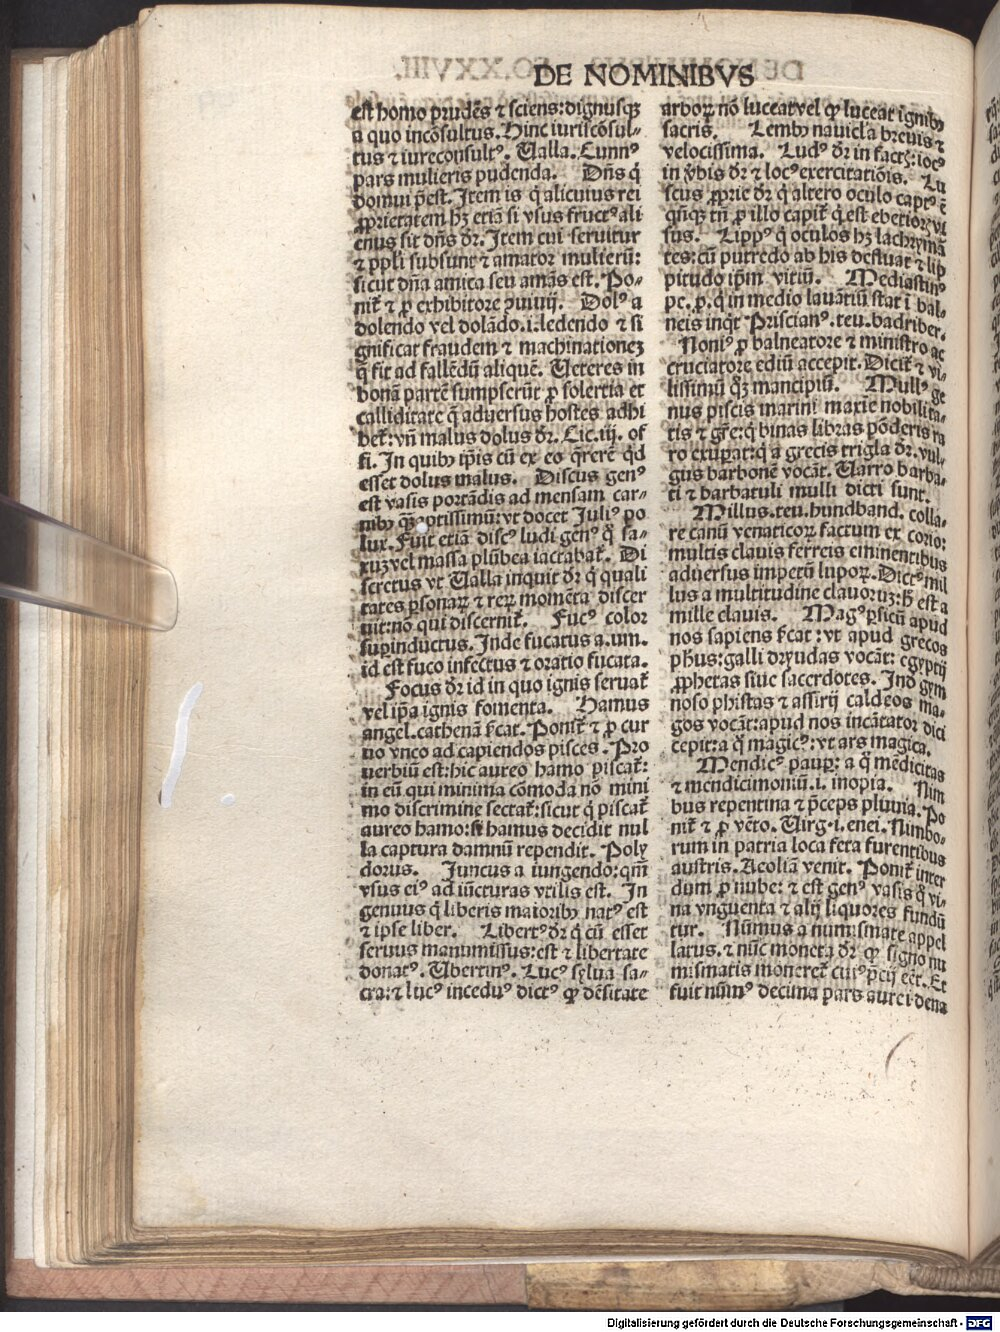 DE NOMINIBVS
est homo prudēs ⁊ sciens: dignusqꝫ
a quo incōsultus. Hinc iuriscōsul-
tus ⁊ iureconsultꝰ. Ualla. Cunnꝰ
pars mulieris pudenda. Dn̄s q̇
domui p̄est. Item is q̇ alicuius rei
ꝓprietatem hꝫ etiā si vsus fructꝰ ali
enus sit dn̄s dr̄. Item cui seruitur
⁊ ppl̄i subsunt ⁊ amator mulierū:
sicut dn̄a amica seu amās est. Po-
nit̄ ⁊ ꝓ exhibitore ꝯuiuij. Dolꝰ a
dolendo vel dolādo.i.ledendo ⁊ si
gnificat fraudem ⁊ machinationeꝫ
q̄ fit ad fallēdū aliquē. Ueteres in
bonā partē sumpserūt ꝓ solertia et
calliditate q̄ aduersus hostes adhi
bet̄: vn̄ malus dolus dr̄. Cic.iij. of
fi. In quibꝫ ip̄is cū ex eo q̄rerē qd̄
esset dolus malus. Discus genꝰ
est vasis portādis ad mensam car-
nibꝫ q̄ꝫ aptissimū: vt docet Juliꝰ po
lux. Fuit etiā discꝰ ludi genꝰ q̄ sa-
xuꝫ vel massa plūbea iactabat̄. Di
scretus vt Ualla inquit dr̄ q̇ quali
tates ꝑsonaꝝ ⁊ reꝝ momēta discer
nit: nō qui discernit̄. Fucꝰ color
suꝑinductus. Inde fucatus a.um.
id est fuco infectus ⁊ oratio fucata.
Focus dr̄ id in quo ignis seruat̄
vel ip̄a ignis fomenta. Hamus
angel. cathenā s̄cat. Ponit̄ ⁊ ꝓ cur
uo vnco ad capiendos pisces. Pro
uerbiū est: hic aureo hamo piscat̄:
in eū qui minima cōmoda nō mini
mo discrimine sectat̄: sicut q̇ piscat̄
aureo hamo: si hamus decidit nul
la captura damnū rependit. Poly
dorus. Juncus a iungendo: qm̄
vsus eiꝰ ad iūcturas vtilis est. In
genuus q̇ liberis maioribꝫ natꝰ est
⁊ ipse liber. Libertꝰ dr̄ q̇ cū esset
seruus manumissus: est ⁊ libertate
donatꝰ. Ubertinꝰ. Lucꝰ sylua sa-
cra: ⁊ lucꝰ inceduꝰ dictꝰ ꝙ dēsitate
arboꝝ nō luceat vel ꝙ luceat ignibꝫ
sacris. Lembꝰ nauicl̄a breuis ⁊
velocissima. Ludꝰ dr̄ in fact̄ꝫ: iocꝰ
in v̄bis dr̄ ⁊ locꝰ exercitatiōis. Lu
scus ꝓprie dr̄ q̇ altero oculo captꝰ ē
qn̄qꝫ tn̄ ꝓ illo capit̄ q̇ est ebetioꝝ vi
sus. Lippꝰ q̇ oculos hꝫ lachrymā
tes: cū putredo ab his destuat ⁊ lip
pitudo ip̄m vitiū. Mediastinꝰ
pe.p. q̇ in medio lauātiū stat i bal-
neis inq̇t Priscianꝰ. teu. badriber.
Noniꝰ ꝓ balneatore ⁊ ministro ac
cruciatore ediū accepit. Dicit̄ ⁊ vi-
lissimū q̇ꝫ mancipiū. Mullꝰ ge
nus piscis marini maxīe nobilita-
tis ⁊ gr̄e: q̇ binas libras pōderis ra
ro exuꝑat: q̇ a grecis trigla dr̄. vul-
gus barbonē vocāt. Uarro barba-
ti ⁊ barbatuli mulli dicti sunt.
Millus. teu. hundband. colla-
re canū venaticoꝝ factum ex corio:
multis clauis ferreis eminentibus
aduersus impetū lupoꝝ. Dictꝰ mil
lus a multitudine clauoruꝫ: h̄ est a
mille clauis. Magꝰ ꝑsicū apud
nos sapiens s̄cat: vt apud grecos
ph̄us: galli dryudas vocāt: egyptij
ꝓphetas siue sacerdotes. Indi gym
noso phistas ⁊ assirij caldeos ma-
gos vocāt: apud nos incātator dici
cepit: a q̄ magicꝰ: vt ars magica.
Mendicꝰ pauꝑ: a q̄ mēdicitas
⁊ mendicimoniū.i. inopia. Nim
bus repentina ⁊ p̄ceps pluuia. Po
nit̄ ⁊ ꝓ vēto. Uirg.i.enei. Nimbo-
rum in patria loca feta furentibus
austris. Aeoliā venit. Ponit̄ inter
dum ꝓ nube: ⁊ est genꝰ vasis q̄ vi-
na vnguenta ⁊ alij liquores fundū
tur. Nūmus a numismate appel
latus. ⁊ nūc moneta dr̄ ꝙ signo nu
mismatis moneret̄ cuiꝰ p̄cij eēt. Et
fuit nūmꝰ decima pars aurei dena
Digitalisierung gefördert durch die Deutsche Forschungsgemeinschaft - DFG